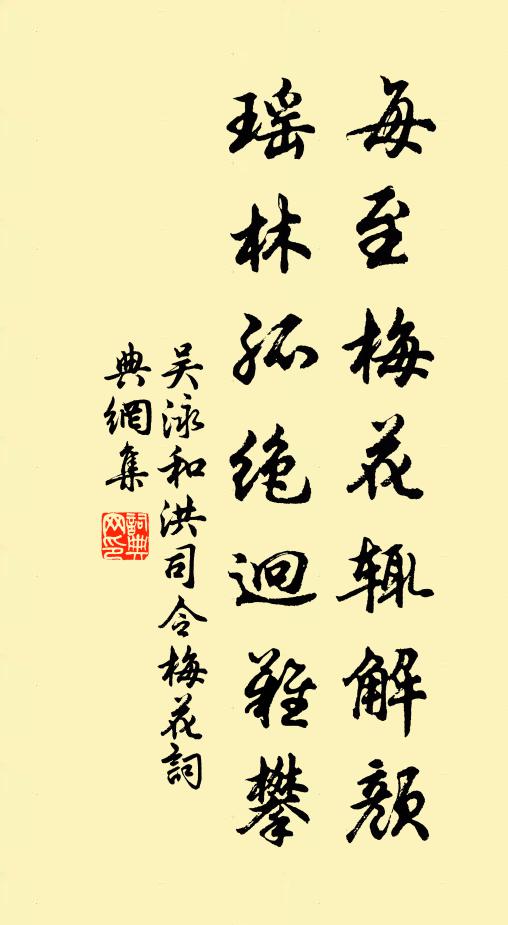 每至梅花辄解颜
瑶林孤绝迥难攀
吴泳和洪司令梅花詞
典網集
詞典網印